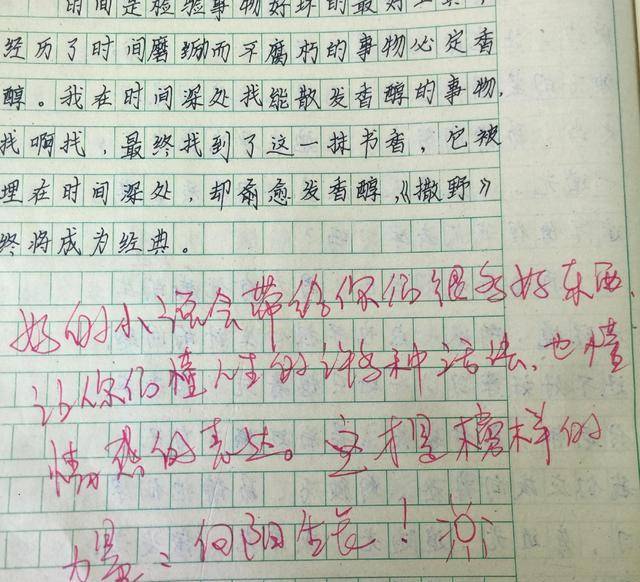 时间是检验事物好坏的最好工具，
经历了时间磨砺而不腐朽的事物必定香
醇。我在时间深处找能散发香醇的事物，
找啊找，最终找到了这一抹书香，它被
埋在时间深处，却愈发香醇，《撒野》
终将成为经典。
好的小说会带给你们很多好东西，
让你们懂人生的许多种活法，也懂
情感的表达。这才是榜样的
力量：向阳生长！